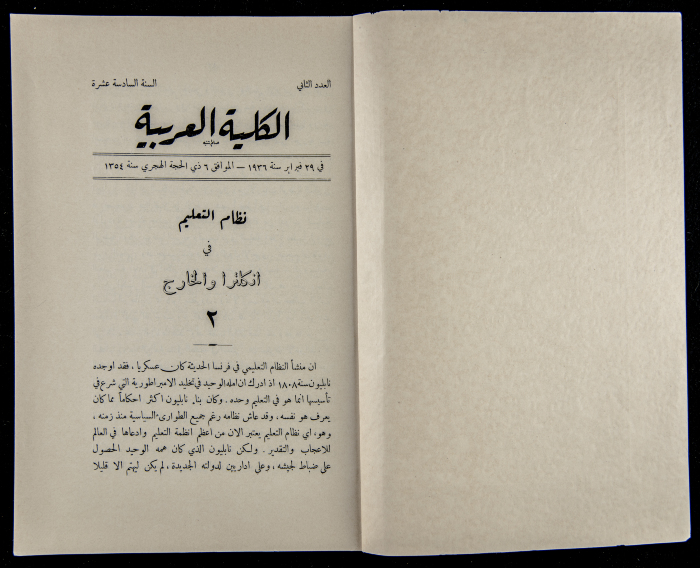 العدد الثاني السنة السادسة عشرة
الكلية العربية
في ٢٩ فبراير سنة ١٩٣٦ — الموافق ٦ ذي الحجة الهجري سنة ١٣٥٤
نظام التعليم
في
انكلترا والخارج
٢
ان منشأ النظام التعليمي في فرنسا الحديثة كان عسكريا ، فقد اوجده
نابليون سنة ١٨٠٨ اذ ادرك ان امله الوحيد في تخليد الامبراطورية التي شرع في
تأسيسها انما هو في التعليم وحده . وكان بناء نابليون اكثر احكاماً مما كان
يعرف هو نفسه ، وقد عاش نظامه رغم جميع الطوارىء السياسية منذ زمنه ،
وهو، اي نظام التعليم يعتبر الان من اعظم انظمة التعليم وادعاها في العالم
للاعجاب والتقدير . ولكن نابليون الذي كان همه الوحيد الحصول
على ضباط لجيشه ، وعلى اداريين لدولته الجديدة ، لم يكن ليهتم الا قليلا